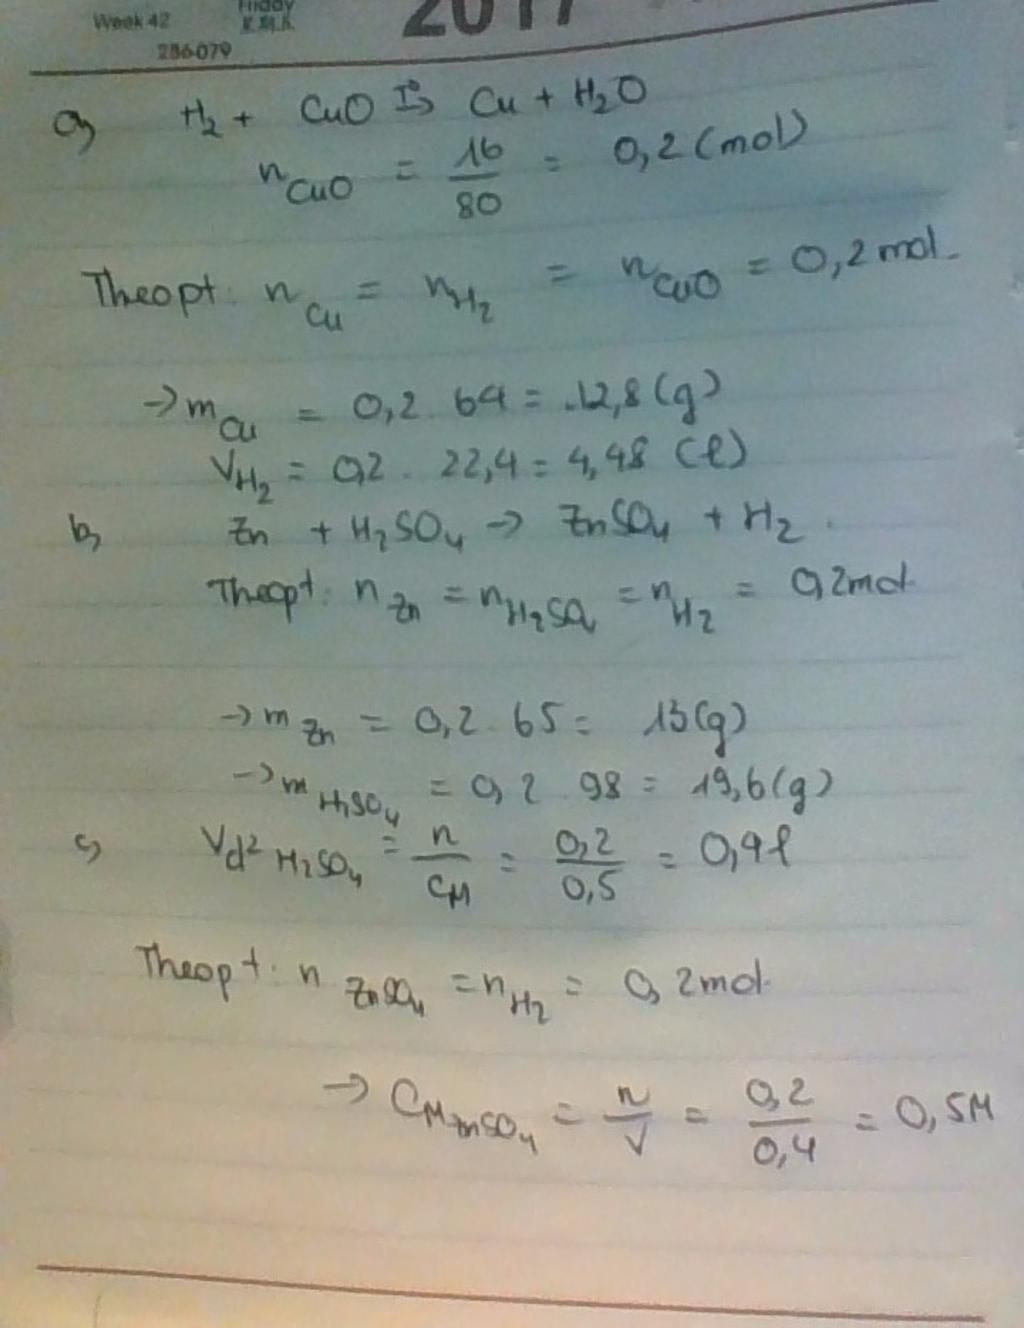 Week 42
Friday
286-079
2017
a, H₂ + CuO t°→ Cu + H₂O
n CuO = 16/80 = 0,2 (mol)
Theo pt: n Cu = n H₂ = n CuO = 0,2 mol.
→ m Cu = 0,2 . 64 = 12,8 (g)
V H₂ = 0,2 . 22,4 = 4,48 (l)
b, Zn + H₂SO₄ → ZnSO₄ + H₂.
Theo pt: n Zn = n H₂SO₄ = n H₂ = 0,2 mol.
→ m Zn = 0,2 . 65 = 13 (g)
→ m H₂SO₄ = 0,2 . 98 = 19,6 (g)
c, Vd² H₂SO₄ = n/CM = 0,2/0,5 = 0,4 l
Theo pt: n ZnSO₄ = n H₂ = 0,2 mol.
→ CM ZnSO₄ = n/V = 0,2/0,4 = 0,5M